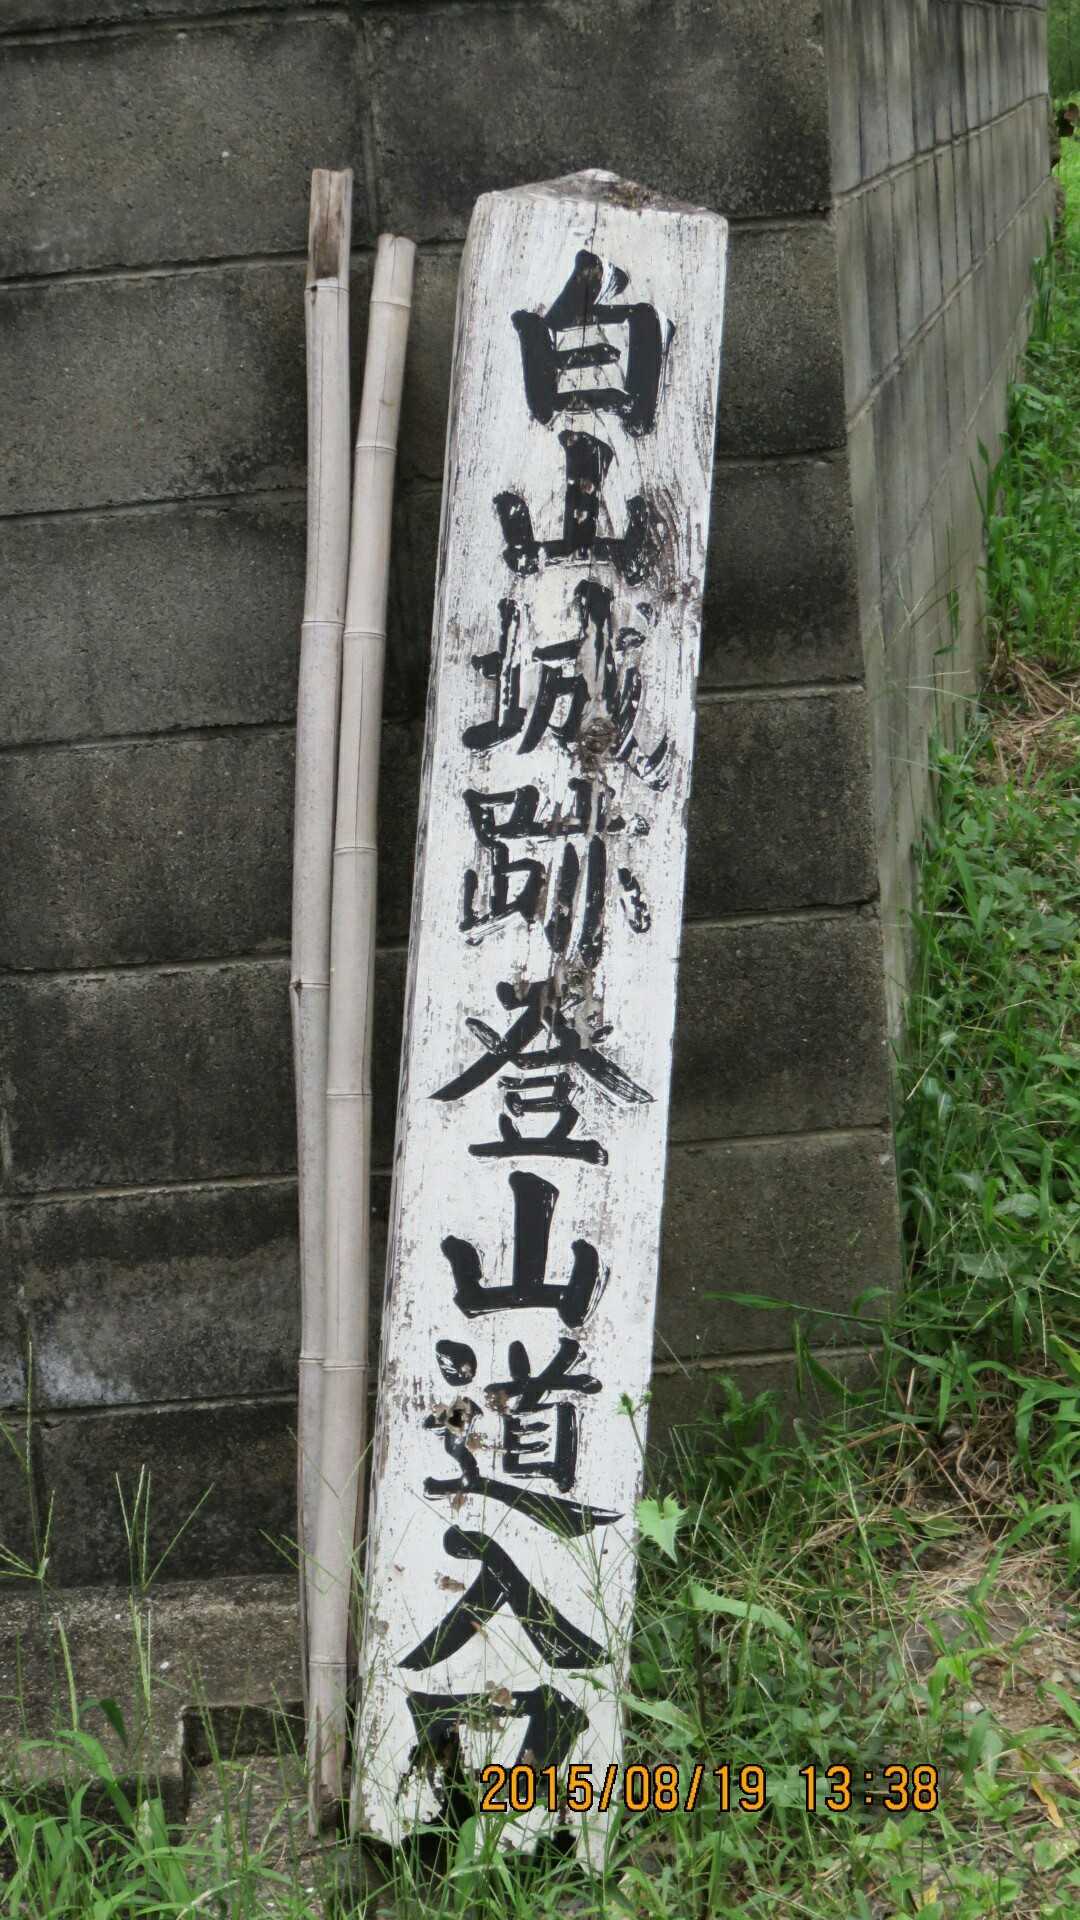 白山城跡登山道入口
2015/08/19 13:38